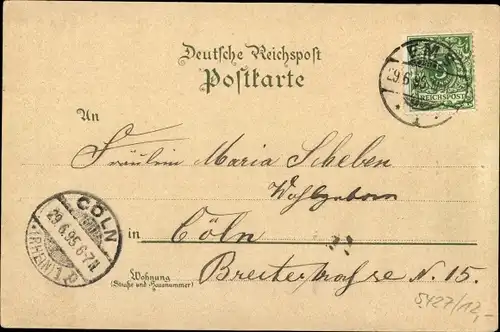 Deutsche Reichspost
Postkarte
EMS
29.6.95
5
REICHSPOST
An
Fräulein Maria Scheben
Wohlgeboren
CÖLN
29.6.95.6-7N.
(RHEIN) 1
in Cöln
Breiterstrasse N. 15.
Wohnung
(Straße und Hausnummer)
5427/12,-